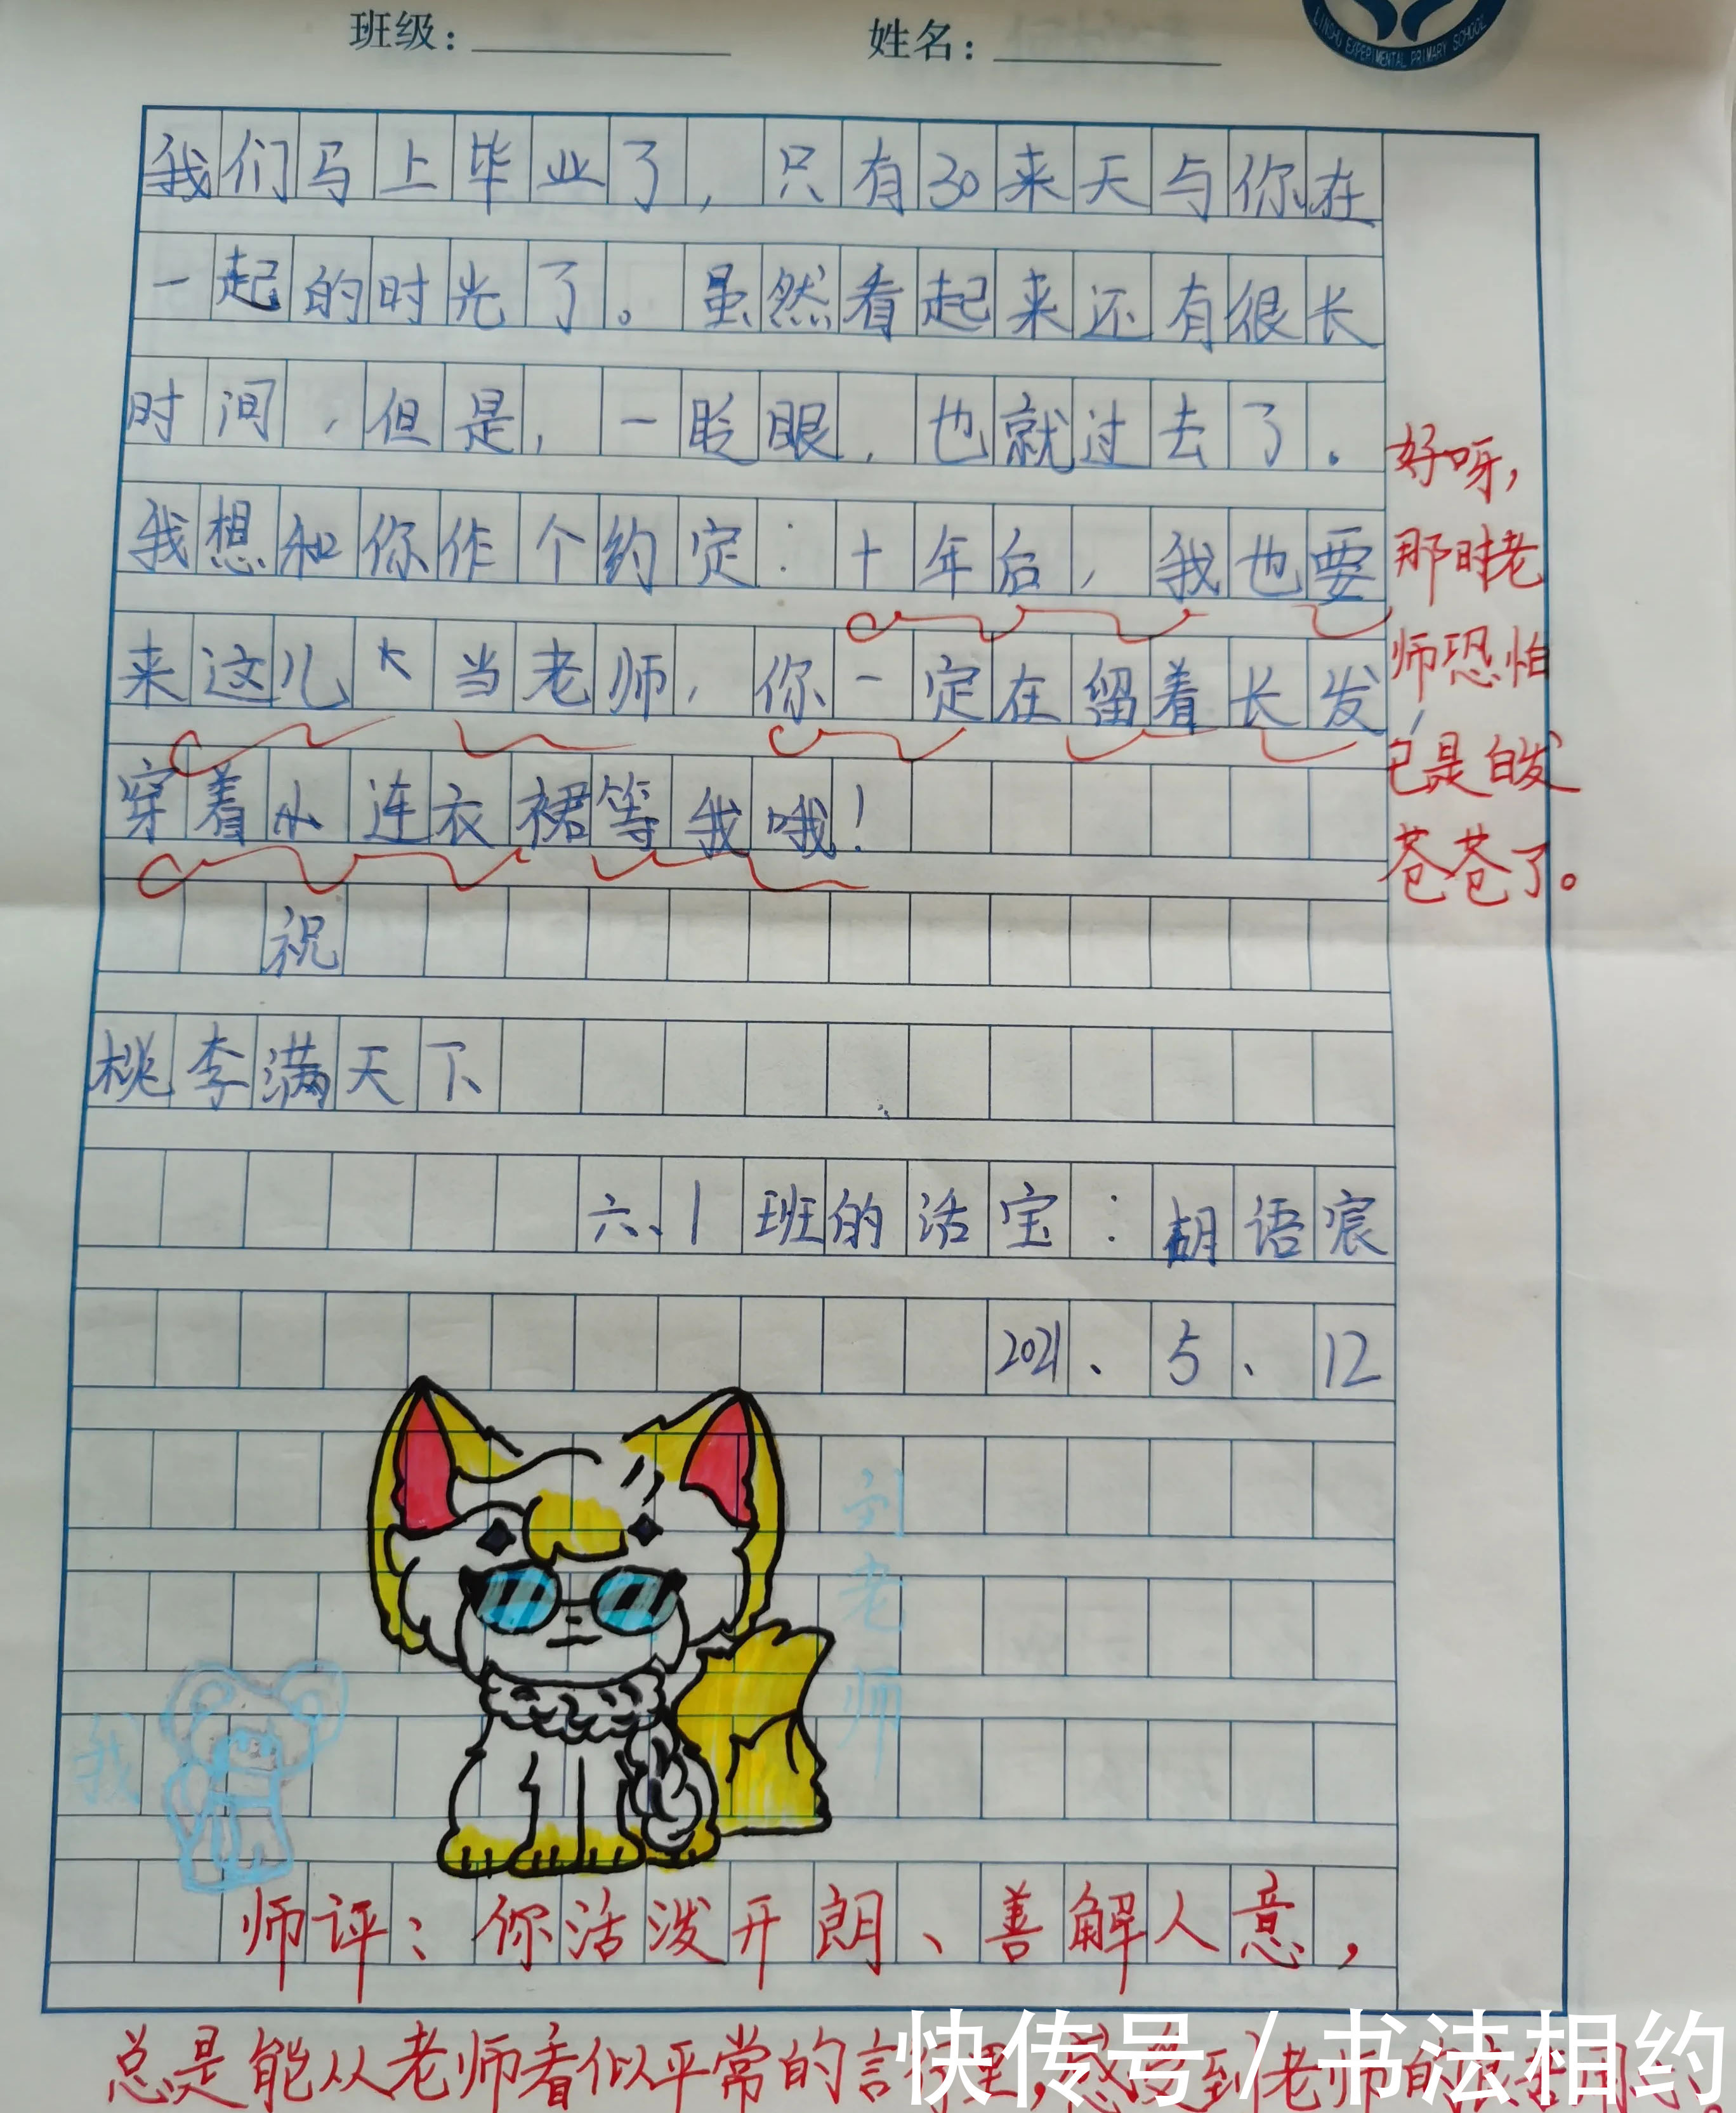 班级： 姓名：
LINSHU EXPERIMENTAL PRIMARY SCHOOL
我们马上毕业了，只有30来天与你在
一起的时光了。虽然看起来还有很长
时间，但是，一眨眼，也就过去了。
我想和你作个约定：十年后，我也要
来这儿当老师，你一定在留着长发，
穿着小连衣裙等我哦！
好呀，
那时老
师恐怕
已是白发
苍苍了。
祝
桃李满天下
六、1班的活宝：胡语宸
2021、5、12
刘老师
我
师评：你活泼开朗、善解人意，
总是能从老师看似平常的言行里，感受到老师的
快传号/书法相约